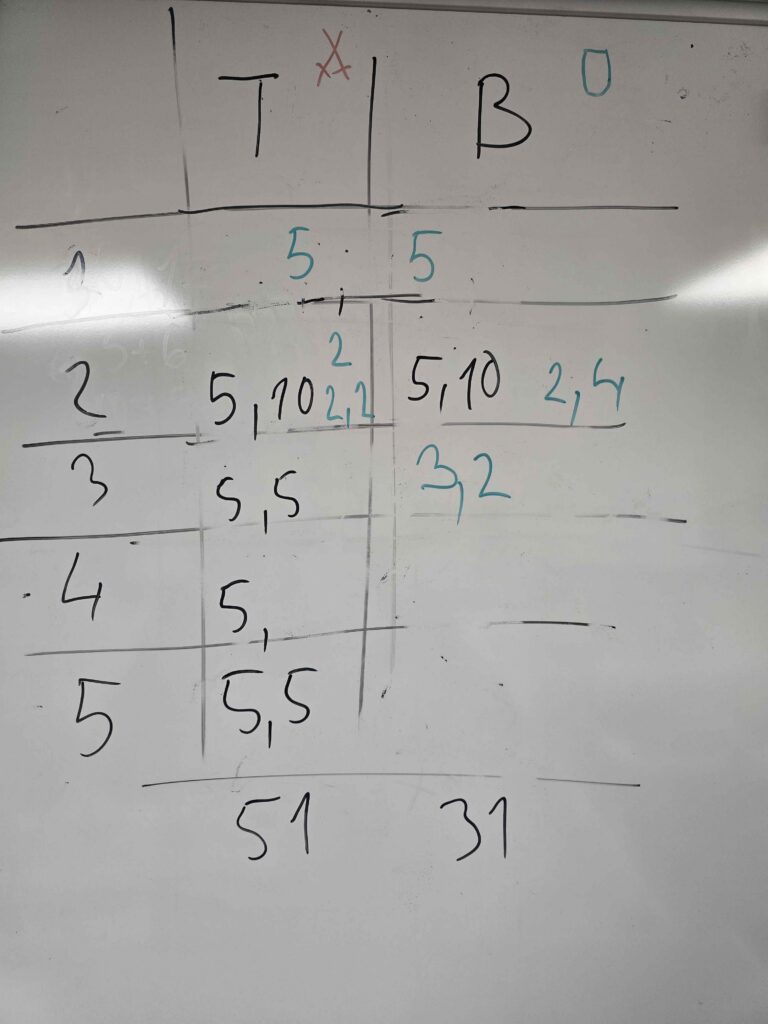 T X B 0
1 5, 5
2
2 5,10 2,2 5,10 2,4,
3 5,5 3,2
4 5,
5 5,5
51 31